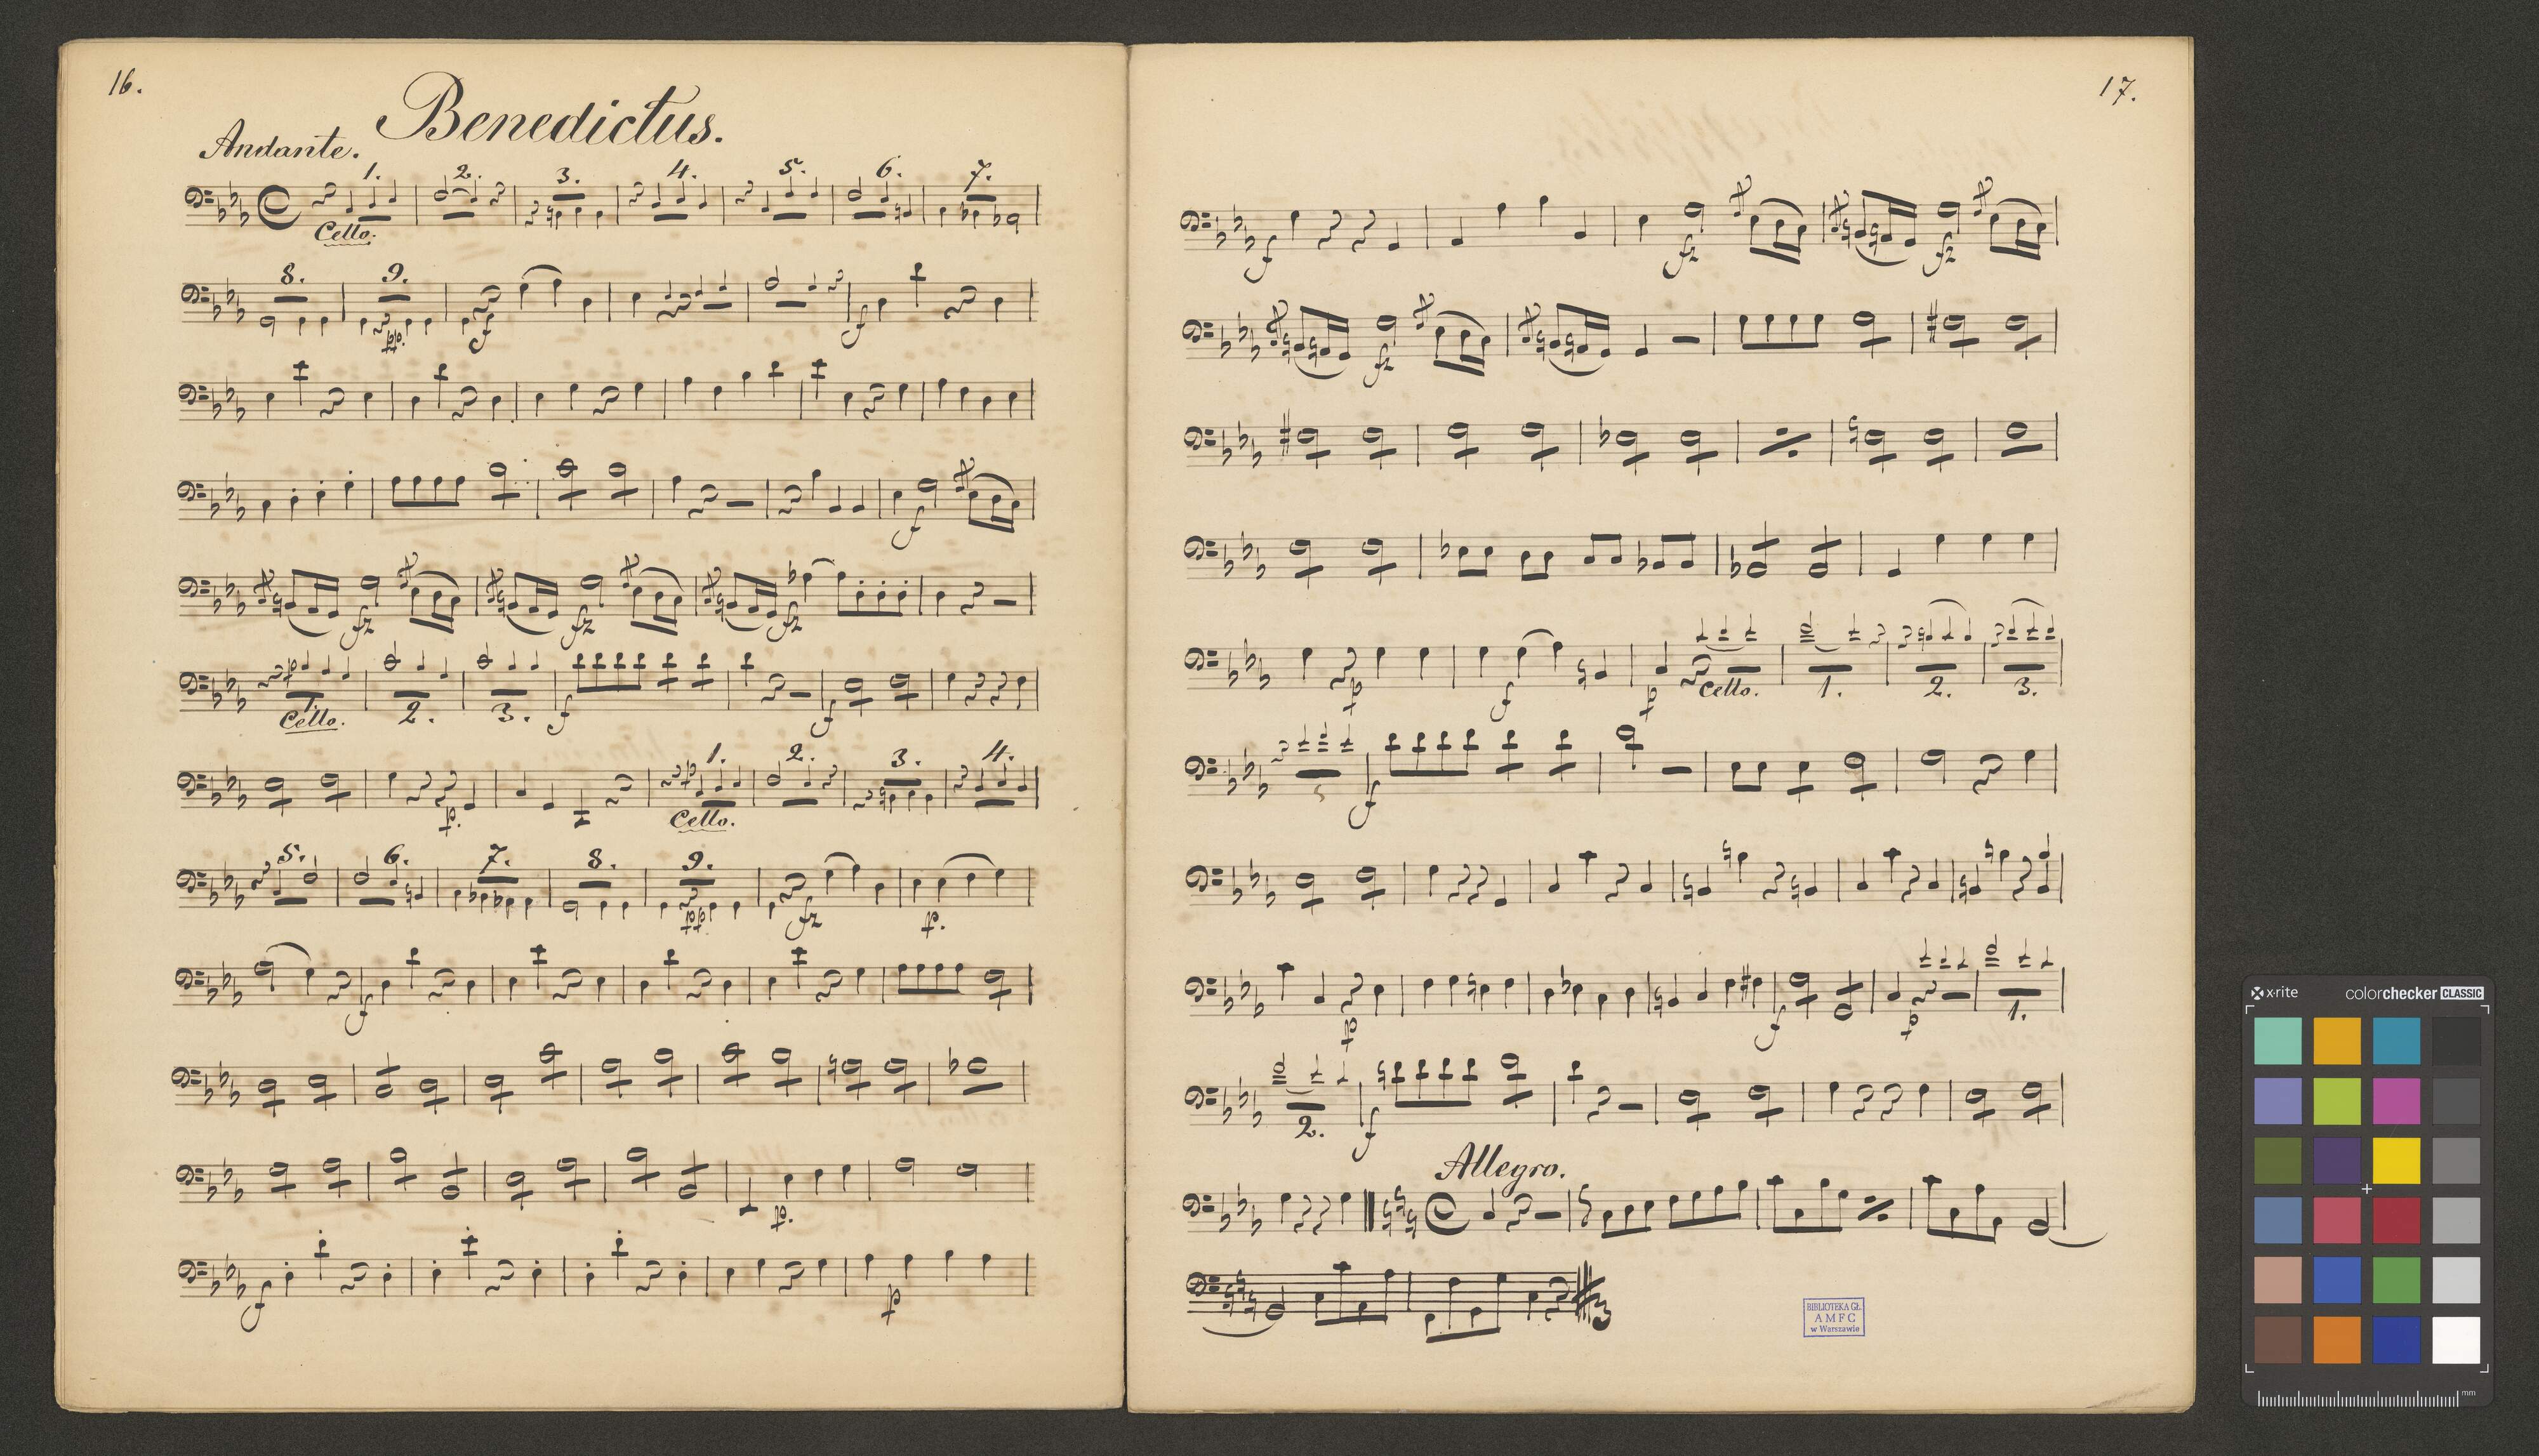 16.
Benedictus.
Andante.
1. 2. 3. 4. 5. 6. 7.
Cello.
8. 9.
pp. f f
f
fz fz fz
p f f
Cello. 1. 2. 3.
1. 2. 3. 4.
p. Cello.
5. 6. 7. 8. 9.
pp fz p.
f
p.
f p
17.
f fz fz
fz
p f p Cello. 1. 2. 3.
f
p f p 1.
2. f
Allegro.
BIBLIOTEKA GŁ.
AMFC
w Warszawie
x-rite colorchecker CLASSIC
mm